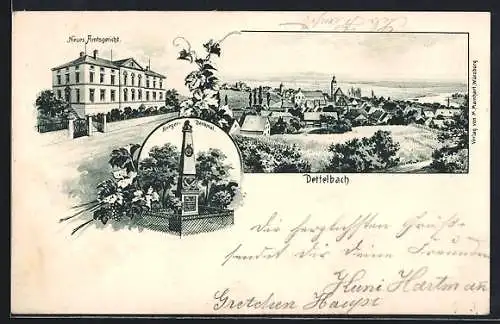 Neues Amtsgericht.
Krieger-Denkmal
Verlag von P. Marchert Würzburg
Dettelbach
Die herzlichsten Grüße
sendet dir deine Freundin
Huni Hartman
Gretchen Haupt